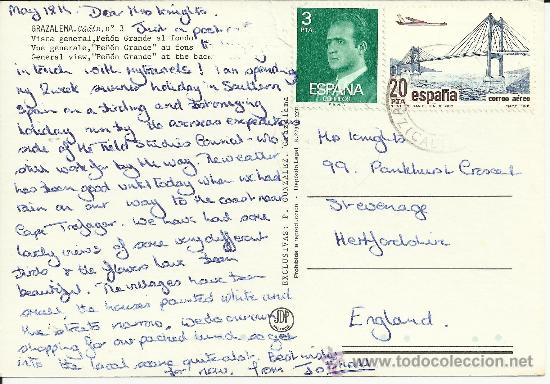 May 18th. Dear Mrs Knights.
GRAZALEMA. Cádiz, nº 3
Just a post
Vista general, Peñón Grande al fondo
Vue generale, "Peñón Grande" au fons
General view, "Peñón Grande" at the back
in touch with my travels! I am spending
my 2 week summer holiday in Southern
Spain on a birding and botanising
holiday run by the overseas expeditions
side of the Field Studies Council - who I
still work for by the way. The weather
has been good until today when we had
rain on our way to the coast near
Cape Trafalgar. We have had some
lovely views of some very different
birds & the flowers have been
beautiful. The villages have been
small, the houses painted white and
the streets narrow. We do our
shopping for our packed lunch so get
into the local scene quite a bit. Best wishes
for now. From Jo
EXCLUSIVAS: P. GONZALEZ. Grazalema
Prohibida la reproducción
Depósito Legal
JDP
3
PTA
ESPAÑA
CORREOS
20
PTA
españa
correo aéreo
Mrs Knights
99, Pankhurst Crescent
Stevenage
Hertfordshire
England.
www.todocoleccion.net